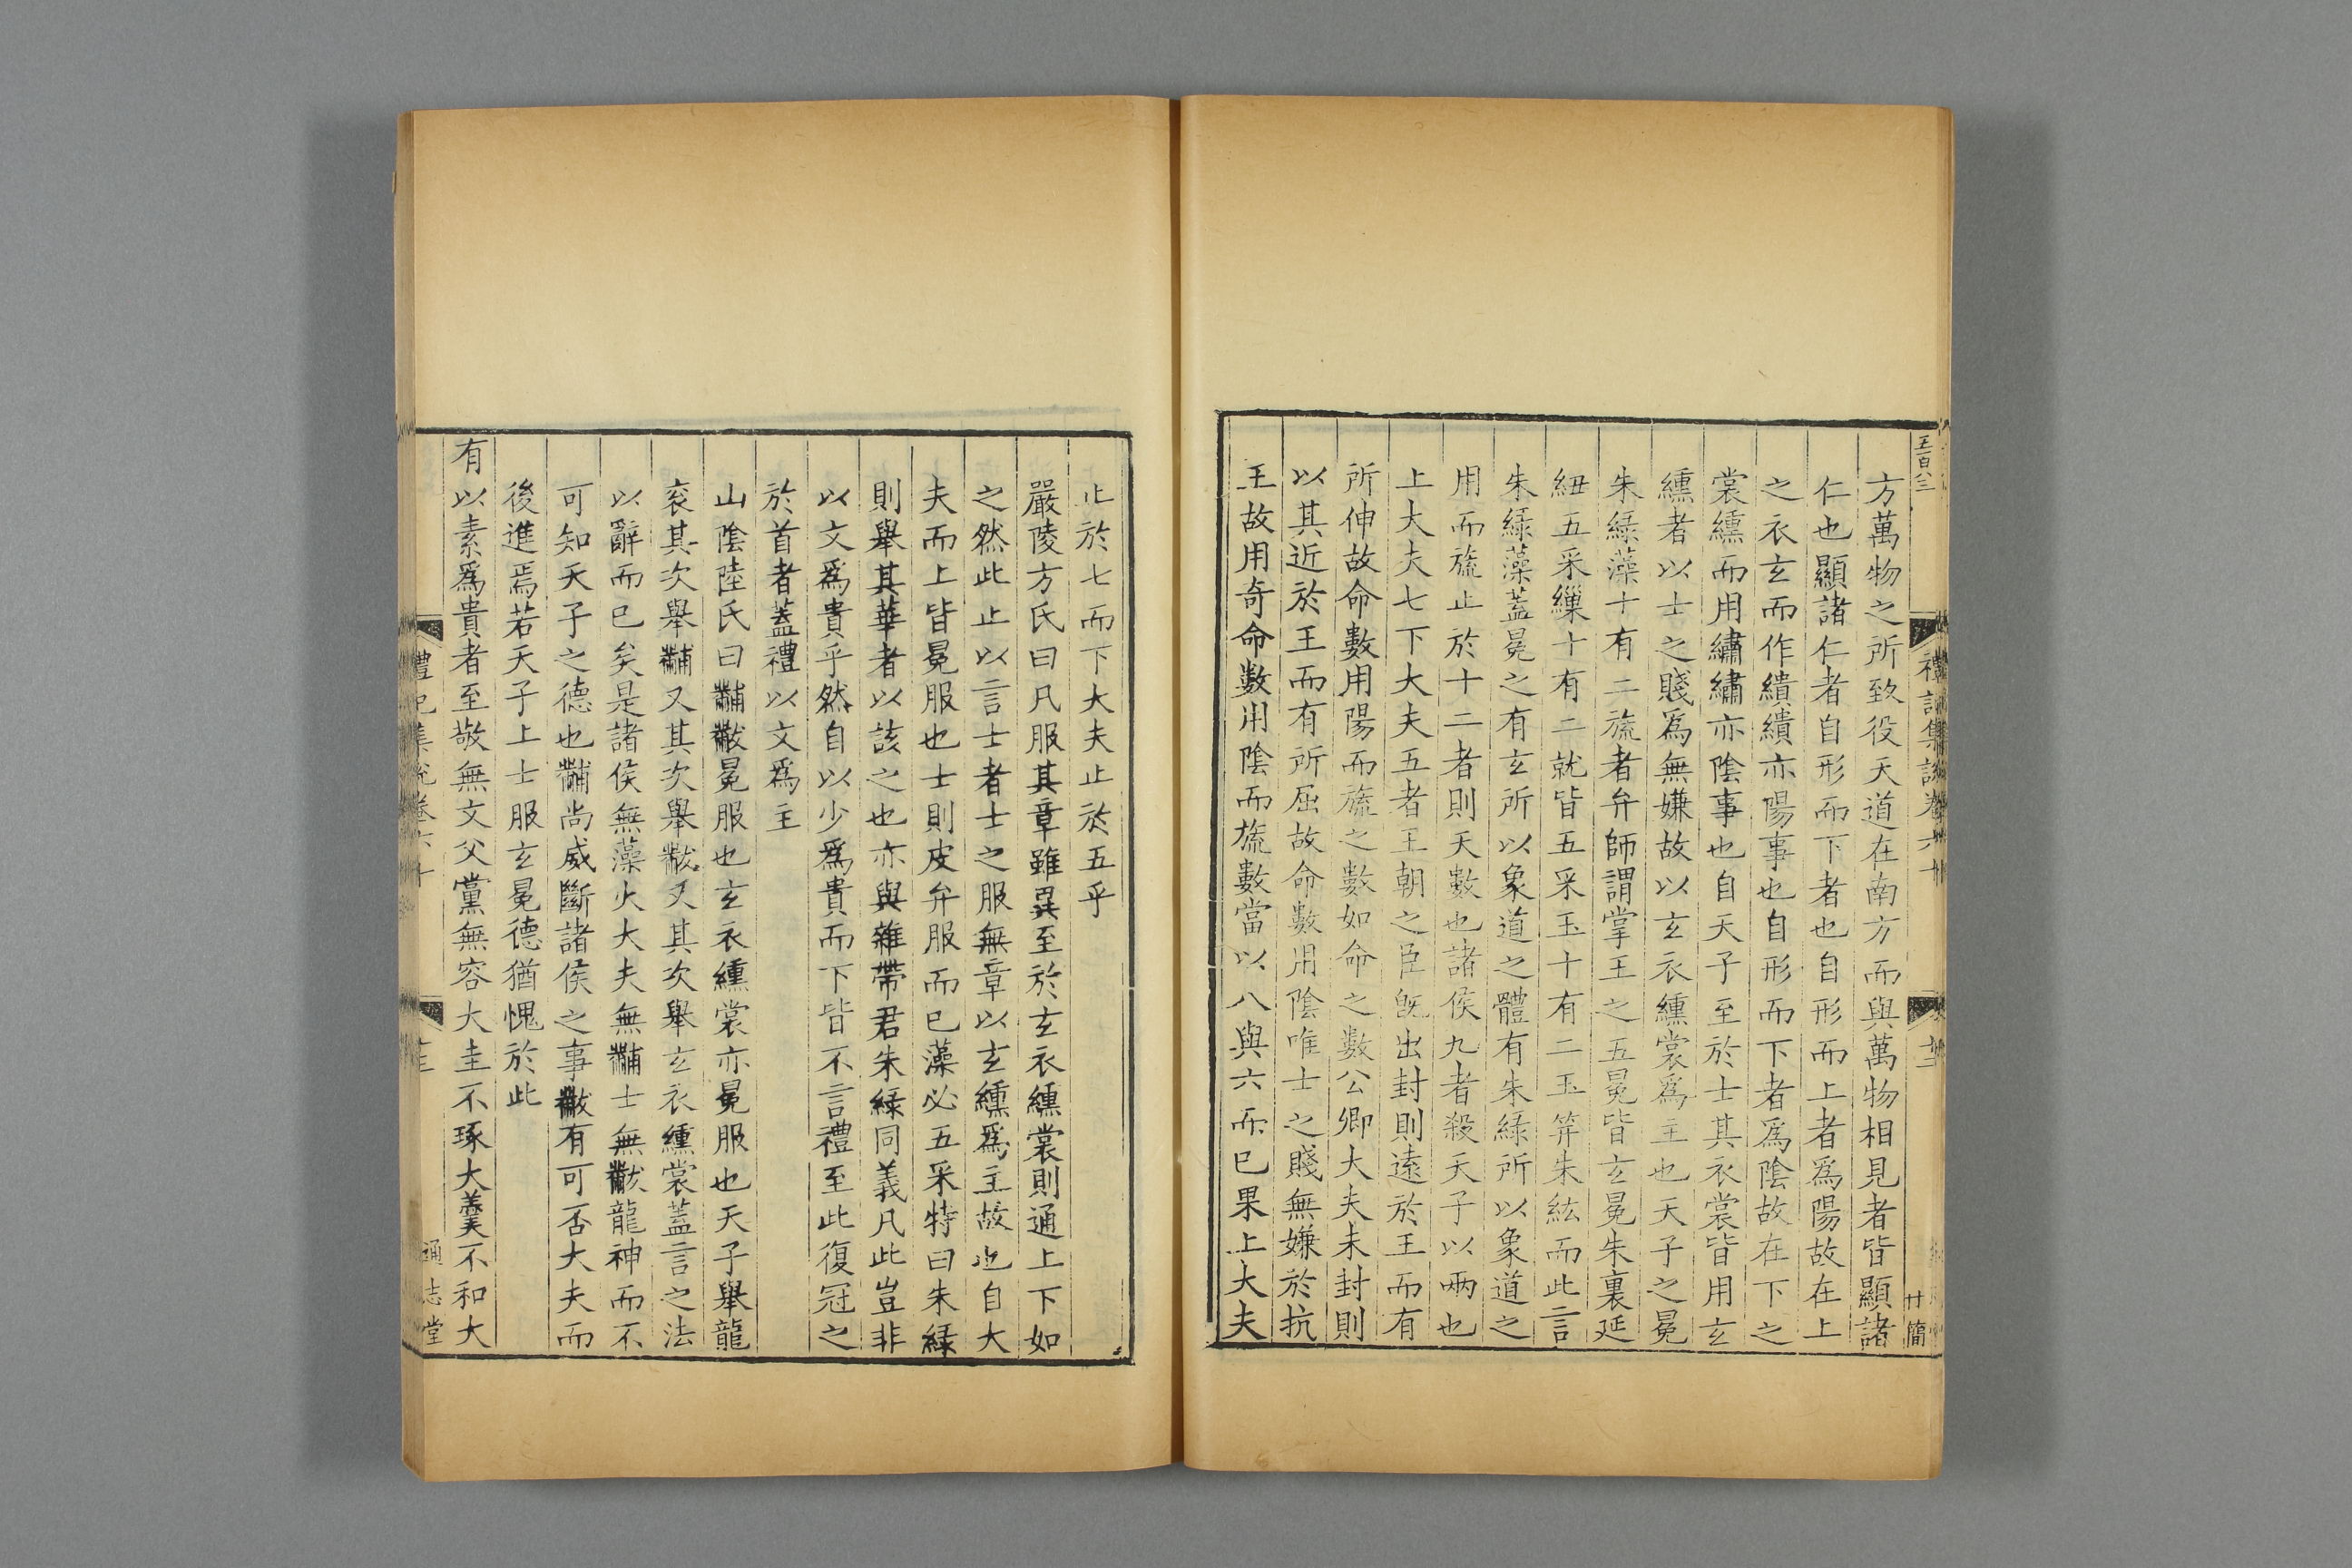 五百八三
禮記集說卷六十
廿簡
方萬物之所致役天道在南方而與萬物相見者皆顯諸
仁也顯諸仁者自形而下者也自形而上者爲陽故在上
之衣玄而作繢繢亦陽事也自形而下者爲陰故在下之
裳纁而用繡繡亦陰事也自天子至於士其衣裳皆用玄
纁者以士之賤爲無嫌故以玄衣纁裳爲主也天子之冕
朱綠藻十有二旒者弁師謂掌王之五冕皆玄冕朱裏延
紐五采繅十有二就皆五采玉十有二玉笄朱紘而此言
朱綠藻蓋冕之有玄所以象道之體有朱綠所以象道之
用而旒止於十二者則天數也諸侯九者殺天子以兩也
上大夫七下大夫五者王朝之臣旣出封則遠於王而有
所伸故命數用陽而旒之數如命之數公卿大夫未封則
以其近於王而有所屈故命數用陰唯士之賤無嫌於抗
王故用奇命數用陰而旒數當以八與六而已果上大夫
止於七而下大夫止於五乎
嚴陵方氏曰凡服其章雖異至於玄衣纁裳則通上下如
之然此止以言士者士之服無章以玄纁爲主故也自大
夫而上皆冕服也士則皮弁服而已藻必五采特曰朱綠
則舉其華者以該之也亦與雜帶君朱綠同義凡此豈非
以文爲貴乎然自以少爲貴而下皆不言禮至此復冠之
於首者蓋禮以文爲主
山陰陸氏曰黼黻冕服也玄衣纁裳亦冕服也天子舉龍
衮其次舉黼又其次舉黻又其次舉玄衣纁裳蓋言之法
以辭而已矣是諸侯無藻火大夫無黼士無黻龍神而不
可知天子之德也黼尚威斷諸侯之事黻有可否大夫而
後進焉若天子上士服玄冕德猶愧於此
有以素爲貴者至敬無文父黨無容大圭不琢大羹不和大
禮記集說卷六十
通志堂